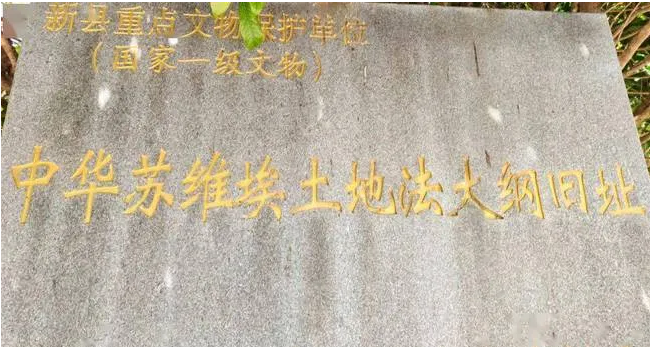 新县重点文物保护单位
（国家一级文物）
中华苏维埃土地法大纲旧址